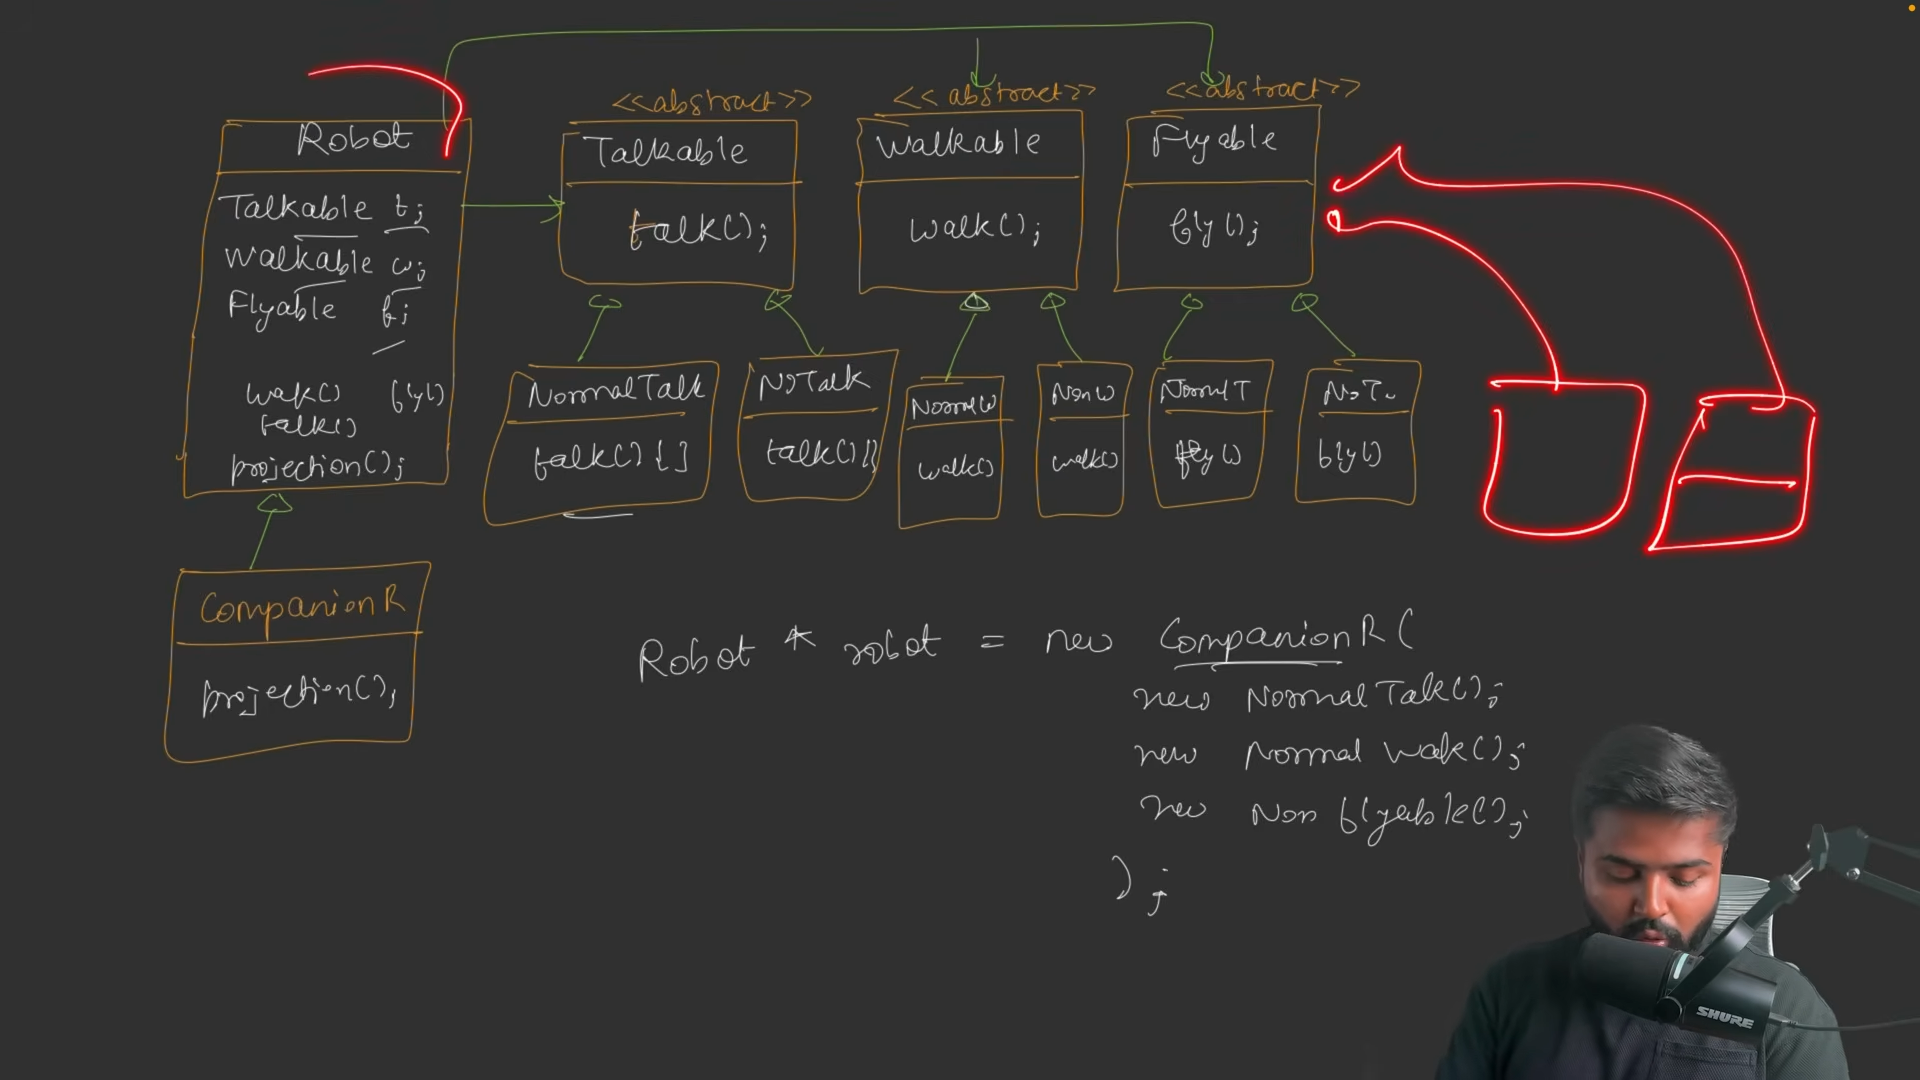 <<abstract>>
<< abstract>>
<<abstract>>
Robot
Talkable t;
Walkable w;
Flyable f;
wak() fly()
talk()
projection();
Talkable
talk();
Walkable
walk();
Flyable
fly();
NormalTalk
talk() { }
NoTalk
talk() {}
NormalW
walk()
NonW
walk()
NormalT
fly()
NoT..
fly()
CompanionR
projection();
Robot * robot = new CompanionR(
new NormalTalk();
new Normal Wak();
new Non flyable();
);
SHURE